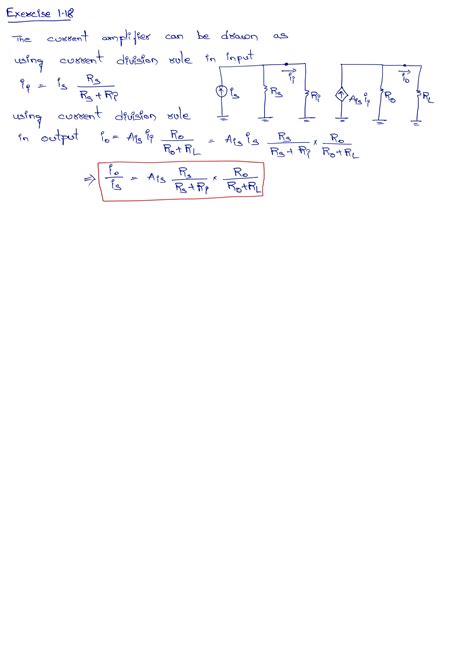 Exercise 1.18
The current amplifier can be drawn as
using current division rule in input
i_i = i_s R_s / (R_s + R_i)
using current division rule
in output i_o = A_is i_i R_o / (R_o + R_L) = A_is i_s R_s / (R_s + R_i) × R_o / (R_o + R_L)
⇒ i_o / i_s = A_is R_s / (R_s + R_i) × R_o / (R_o + R_L)
i_s R_s i_i R_i A_is i_i R_o i_o R_L